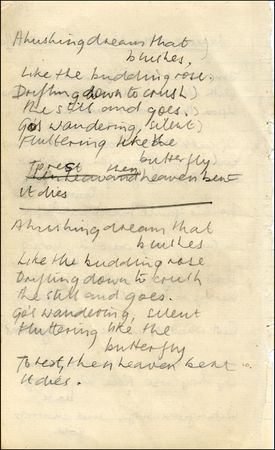 A hushing dream that
blushes,
Like the budding rose.
Drifting down to crush)
the still and goes.)
Go's wandering, silent)
Fluttering like the
butterfly)
To rest then
heaven bent
it dies
A hushing dream that
blushes
Like the budding rose
Drifting down to crush
the still and goes.
Go's wandering, silent
fluttering like the
butterfly
To rest, then heaven bent
it dies.